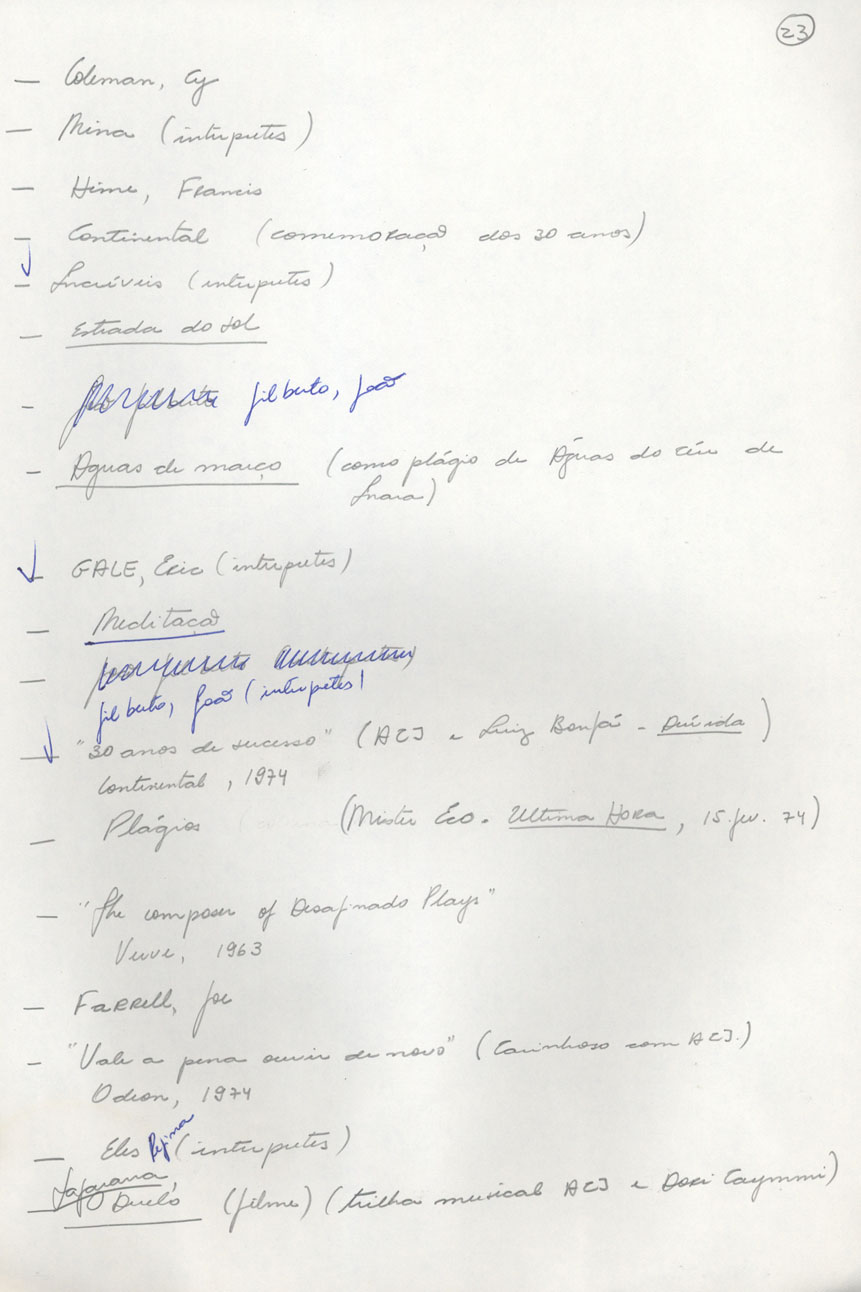 23
— Coleman, Cy
— Mina (intérpretes)
— Hime, Francis
— Continental (comemoração dos 30 anos)
— Incríveis (intérpretes)
— Estrada do sol
— Gilberto, João
— Aguas de março (como plágio de Águas do céu de
Inara)
— GALE, Eric (intérpretes)
— Meditação
—
Gilberto, João (intérpretes)
— "30 anos de sucesso" (ACJ e Luiz Bonfá - Dúvida)
Continental, 1974
— Plágios (Mister Éco. Ultima Hora, 15.fev. 74)
— "The composer of Desafinado Plays"
Verve, 1963
— Farrell, Joe
— "Vale a pena ouvir de novo" (Carinhoso com ACJ.)
Odeon, 1974
— Elis Regina (intérpretes)
Sagarana,
O Duelo (filme) (trilha musical ACJ e Dori Caymmi)